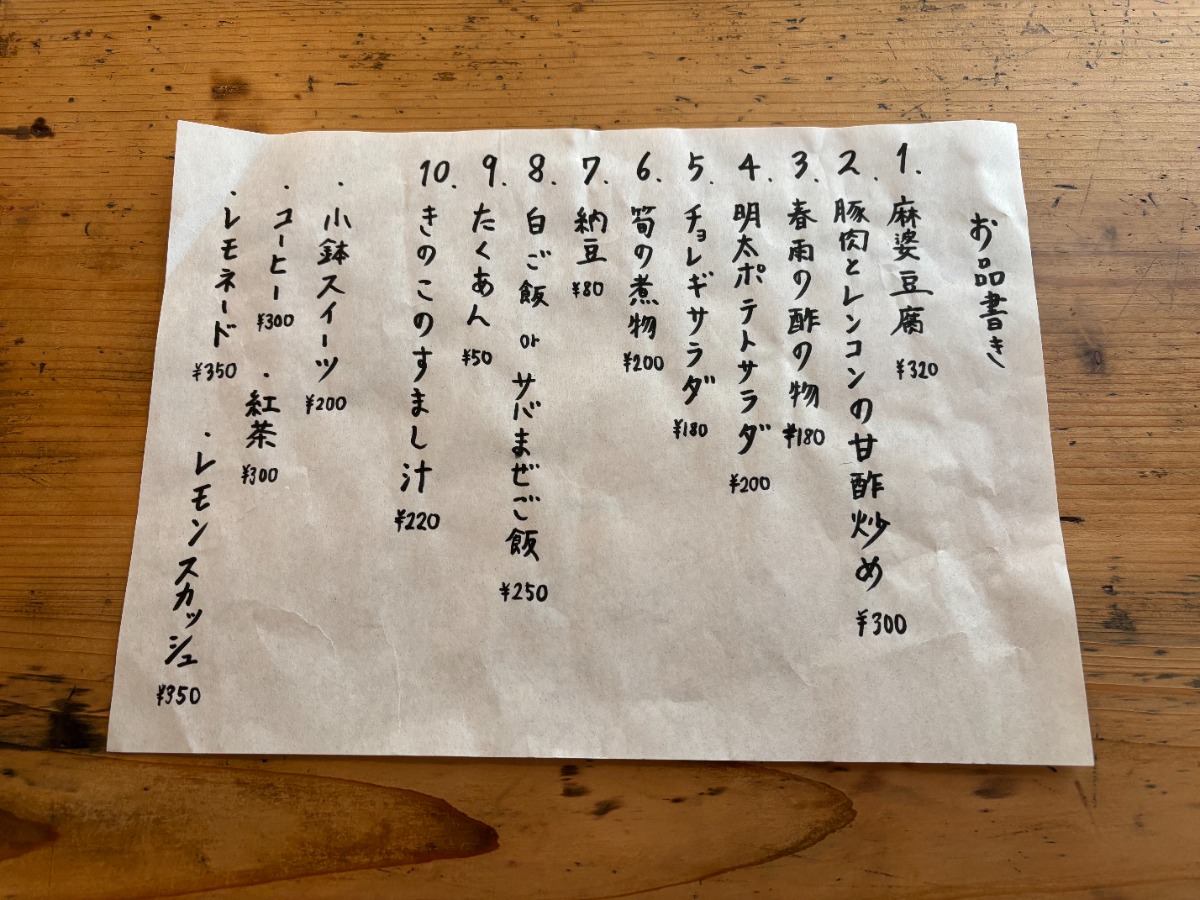 お品書き
1. 麻婆豆腐 ¥320
2. 豚肉とレンコンの甘酢炒め ¥300
3. 春雨の酢の物 ¥180
4. 明太ポテトサラダ ¥200
5. チョレギサラダ ¥180
6. 筍の煮物 ¥200
7. 納豆 ¥80
8. 白ご飯 or サバまぜご飯 ¥250
9. たくあん ¥50
10. きのこのすまし汁 ¥220
・小鉢スイーツ ¥200
・コーヒー ¥300 ・紅茶 ¥300
・レモネード ¥350 ・レモンスカッシュ ¥350